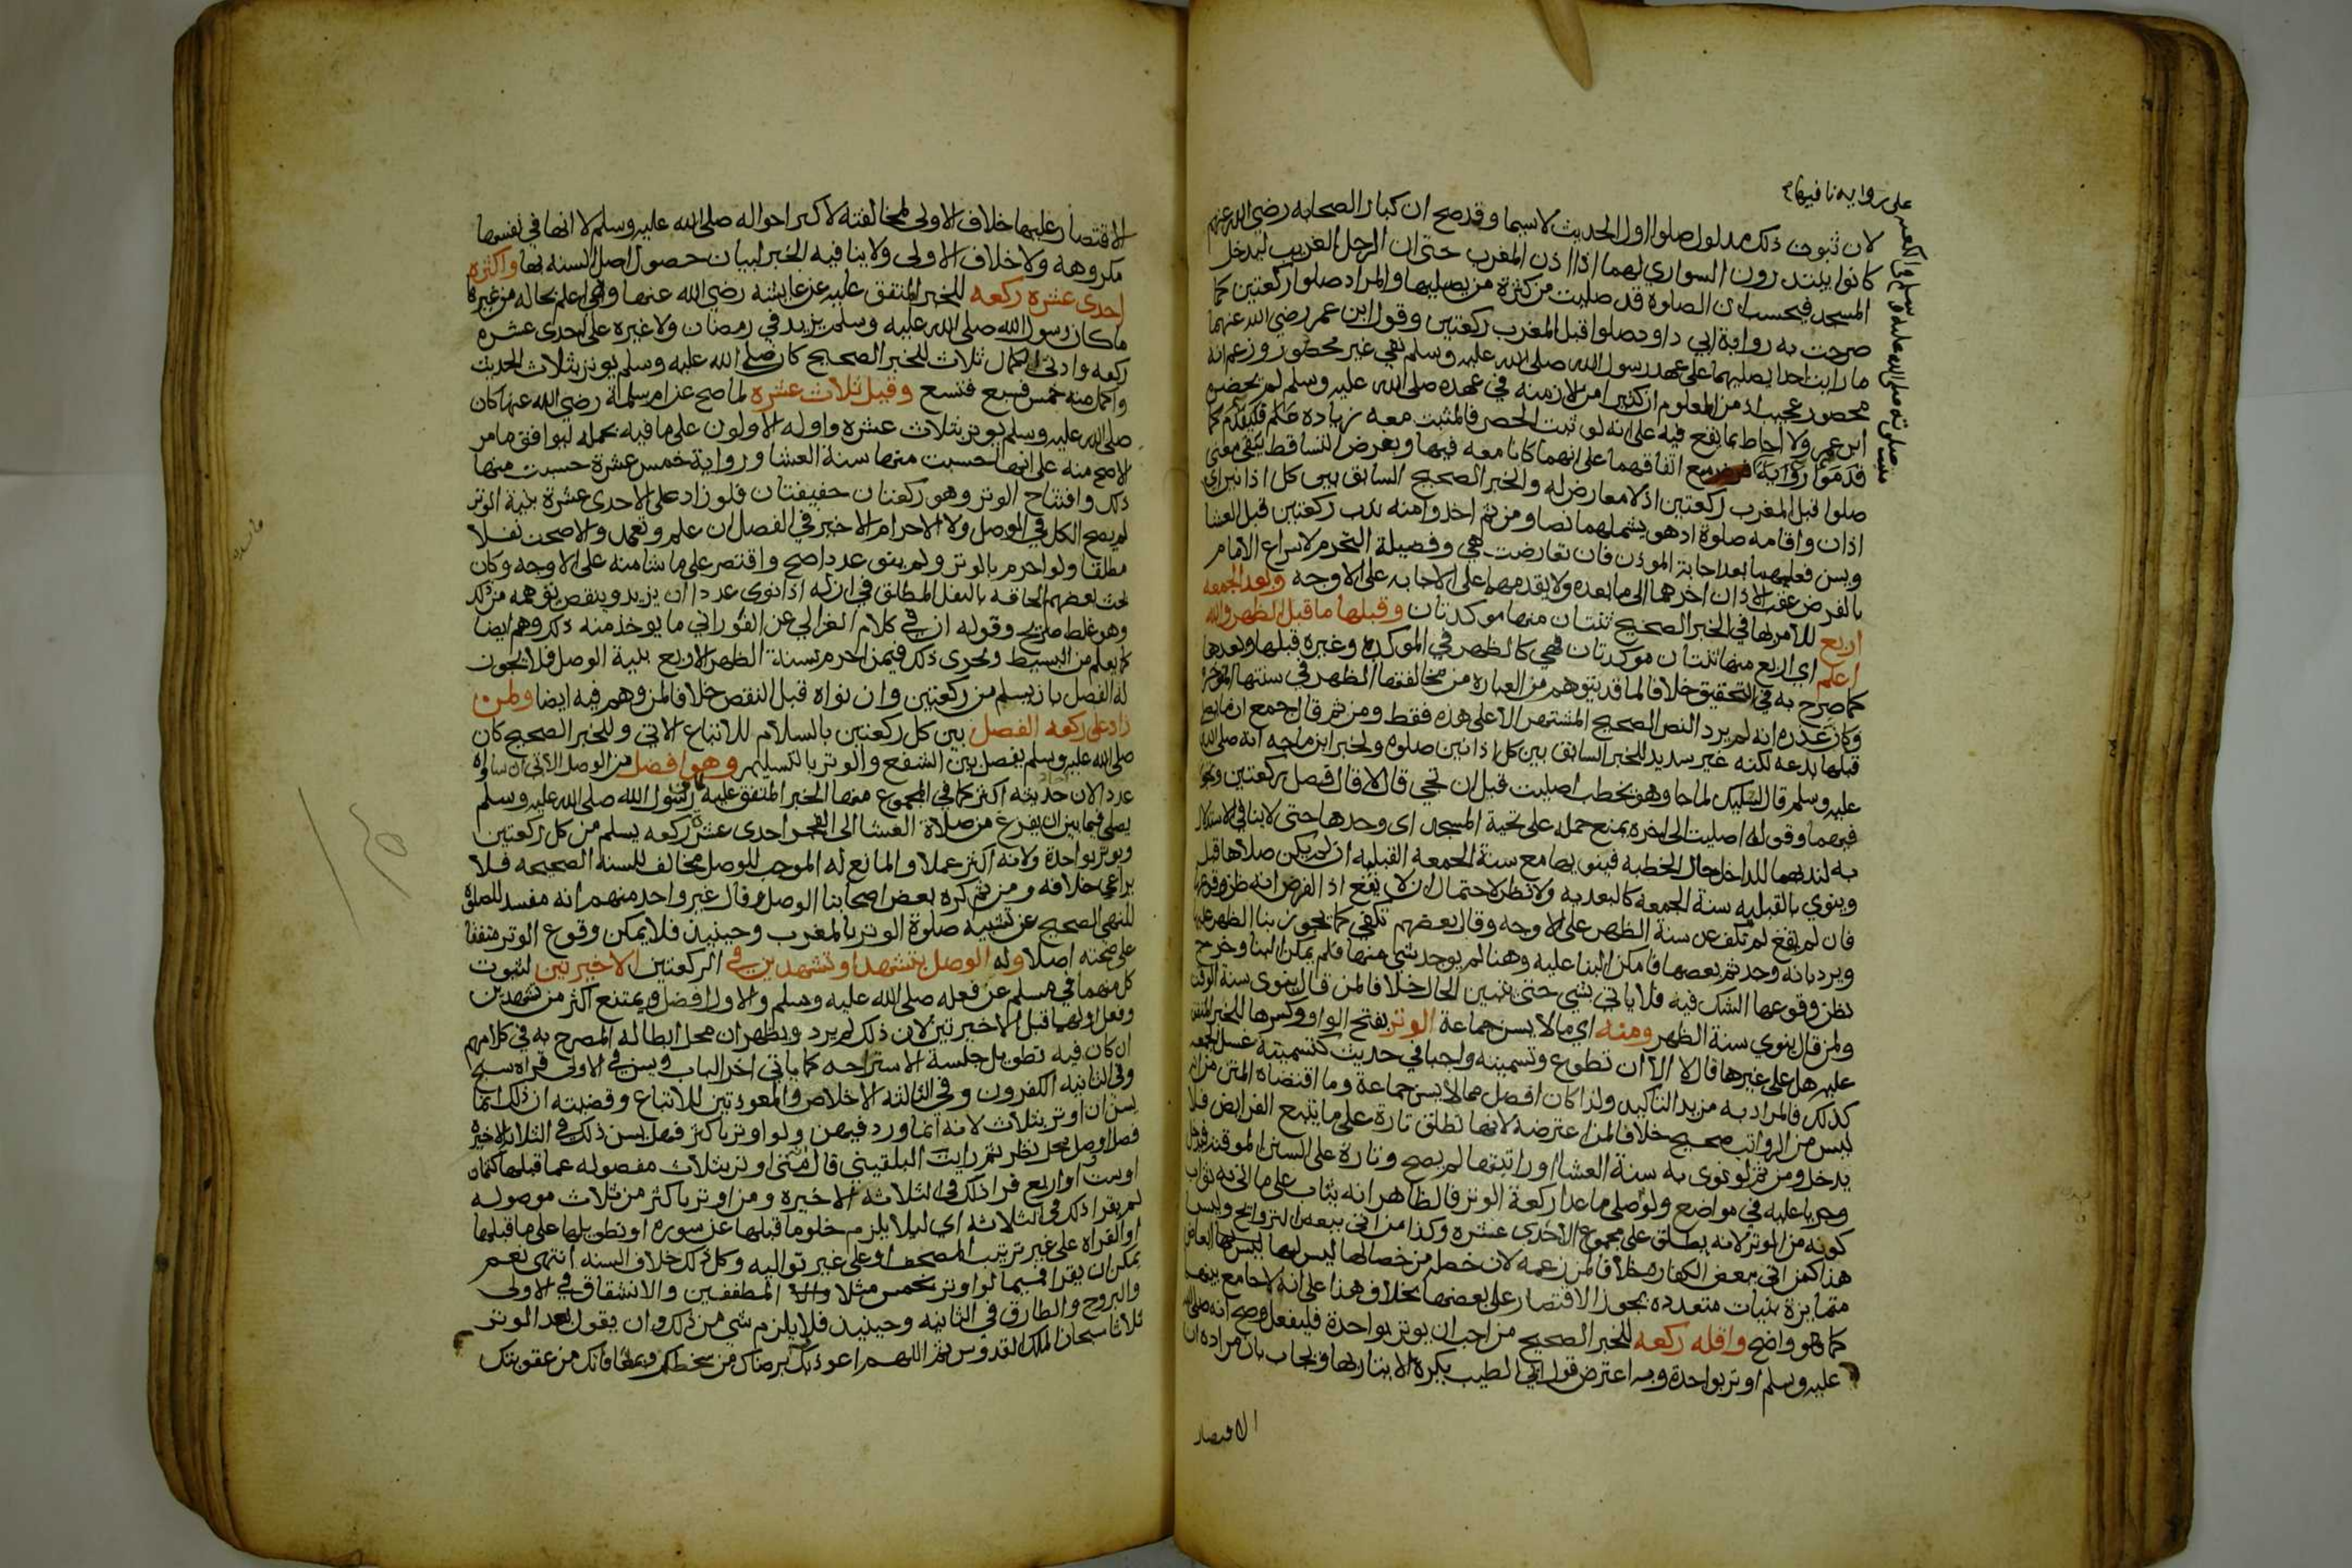 على رواية نافيهام
لان ثبوت ذلك مدلول صلوا اول الحديث لاسيما وقد صح ان كبار الصحابه رضي الله عنهم
كانوا يبتدرون السواري لهما اذا اذن المغرب حتى ان الرجل الغريب ليدخل
المسجد فيحسب ان الصلوة قد صليت من كثرة من يصليها والمراد صلوا ركعتين كما
صرحت به رواية ابي داود صلوا قبل المغرب ركعتين وقول ابن عمر رضي الله عنهما
ما رايت احدا يصليهما على عهد رسول الله صلى الله عليه وسلم نفي غير محصور وزعم انه
محصور عجيب اذ من المعلوم ان كثيرا من الازمنه في عهده صلى الله عليه وسلم لم يحضره
ابن عمر ولا احاط بما يقع فيه على انه لو ثبت الحصر فالمثبت معه زيادة علم فليقدم كما
قدموا رواية مع اتفاقهما على انهما كانا معه فيها وبفرض التساقط يبقى معنى
صلوا قبل المغرب ركعتين اذ لا معارض له والخبر الصحيح السابق بين كل اذانين اي
اذان واقامه صلوة اذ هو يشملهما نصا ومن ثم اخذوا منه ندب ركعتين قبل العشا
ويسن فعليهما بعد اجابة الموذن فان تعارضت هي وفضيلة التحرم لاسراع الامام
بالفرض عقب الاذان اخرهما الى ما بعده ولا يقدمهما على الاجابه على الاوجه وبعد الجمعه
اربع للامر بها في الخبر الصحيح ثنتان منها موكدتان وقبلها ما قبل الظهر والله
اعلم اي اربع منها ثنتان موكدتان فهي كالظهر في الموكدة وغيره قبلها وبعدها
كما صرح به في التحقيق خلافا لما قد يتوهم من العبارة من مخالفتها الظهر في سنتها الموخرة
وكان عذره انه لم يرد النص الصحيح المشتهر الا على هذه فقط ومن ثم قال جمع ان ما
قبلها بدعه لكنه غير سديد للخبر السابق بين كل اذانين صلوة ولخبر ابن ماجه انه صلى الله
عليه وسلم قال لسليك لما جا وهو يخطب اصليت قبل ان تجي قال لا قال فصل ركعتين وتجوز
فيهما وقوله اصليت الى اخره يمنع حمله على تحية المسجد اي وحدها حتى لا ينافي الاستدلال
به لندبهما للداخل حال الخطبه فينويها مع سنة الجمعه القبليه ان لم يكن صلاها قبل
وينوي بالقبليه سنة الجمعة كالبعديه ولا نظر لاحتمال ان لا يقع اذ الفرض انه ظن وقوعها
فان لم يقع لم تكف عن سنة الظهر على الاوجه وقال بعضهم تكفي كما يجوز بنا الظهر عليها
ويرد بانه وجد ثم بعضها فامكن البنا عليه وهنا لم يوجد شي منها فلم يمكن البنا وخرج
بظن وقوعها الشك فيه فلا ياتي بشي حتى يتبين الحال خلافا لمن قال ينوي سنة الوقت
ولمن قال ينوي سنة الظهر ومنه اي ما لا يسن جماعة الوتر بفتح الواو وكسرها للخبر المتفق
عليه هل علي غيرها قال لا الا ان تطوع وتسميته واجبا في حديث كتسمية غسل الجمعه
كذلك فالمراد به مزيد التاكيد ولذا كان افضل مما لا يسن جماعة وما اقتضاه المتن من انه
ليس من الرواتب صحيح خلافا لمن اعترضه لانها تطلق تارة على ما يتبع الفرايض فلا
يدخل ومن ثم لو نوى به سنة العشا او راتبتها لم يصح وتارة على السنن الموقته فيدخل
وجريا عليه في مواضع ولو صلى ما عدا ركعة الوتر فالظاهر انه يثاب على ما اتى به ثواب
كونه من الوتر لانه يطلق على مجموع الاحدى عشره وكذا من اتى ببعض التراويح وليس
هذا كمن اتى ببعض الكفاره خلافا لمن زعمه لان خصلة من خصالها ليس لها
متمايزة بنيات متعدده يجوز الاقتصار على بعضها بخلاف هذا على انه لا جامع بينهما
كما هو واضح واقله ركعه للخبر الصحيح من احب ان يوتر بواحدة فليفعل وصح انه صلى الله
عليه وسلم اوتر بواحدة وبه اعترض قول ابي الطيب يكره الايتار بها ويجاب بان مراده ان
الاقتصار
الاقتصار عليها خلاف الاولى لمخالفته لاكثر احواله صلى الله عليه وسلم لا انها في نفسها
مكروهه ولا خلاف الاولى ولا ينافيه الخبر لبيان حصول اصل السنه بها واكثره
احدى عشره ركعه للخبر المتفق عليه عن عايشه رضي الله عنها وهي اعلم بحاله من غيرها
ما كان رسول الله صلى الله عليه وسلم يزيد في رمضان ولا غيره على احدى عشره
ركعه وادنى الكمال ثلاث للخبر الصحيح كان صلى الله عليه وسلم يوتر بثلاث الحديث
واكمل منه خمس فسبع فتسع وقيل ثلاث عشره لما صح عن ام سلمة رضي الله عنها كان
صلى الله عليه وسلم يوتر بثلاث عشره واوله الاولون على ما فيه بحمله ليوافق ما مر
الاصح منه على انها حسبت منها سنة العشا ورواية خمس عشرة حسبت منها
ذلك وافتتاح الوتر وهو ركعتان خفيفتان فلو زاد على الاحدى عشرة بنية الوتر
لم يصح الكل في الوصل ولا الاحرام الاخير في الفصل ان علم وتعمد والا صحت نفلا
مطلقا ولو احرم بالوتر ولم ينو عددا صح واقتصر على ما شا منه على الاوجه وكان
بحث بعضهم الحاقه بالنفل المطلق في ان له اذا نوى عددا ان يزيد وينقص توهمه من ذلك
وهو غلط صريح وقوله ان في كلام الغزالي عن الفوراني ما يوخذ منه ذلك وهم ايضا
كما يعلم من البسيط ويجري ذلك فيمن احرم بسنة الظهر الاربع بنية الوصل فلا يجوز
له الفصل بان يسلم من ركعتين وان نواه قبل النقص خلافا لمن وهم فيه ايضا ولمن
زاد على ركعه الفصل بين كل ركعتين بالسلام للاتباع الاتي وللخبر الصحيح كان
صلى الله عليه وسلم يفصل بين الشفع والوتر بالتسليم وهو افضل من الوصل الاتي ان ساواه
عددا لان حديثه اكثر كما في المجموع منها الخبر المتفق عليه كان رسول الله صلى الله عليه وسلم
يصلي فيما بين ان يفرغ من صلاة العشا الى الفجر احدى عشرة ركعه يسلم من كل ركعتين
ويوتر بواحدة ولانه اكثر عملا والمانع له الموجب للوصل مخالف للسنة الصحيحه فلا
يراعى خلافه ومن ثم كره بعض اصحابنا الوصل وقال غير واحد منهم انه مفسد للصلوة
للنهي الصحيح عن تشبيه صلوة الوتر بالمغرب وحينيذ فلا يمكن وقوع الوتر متفقا
على صحته اصلا وله الوصل بتشهد او تشهدين في الركعتين الاخيرتين لثبوت
كل منهما في مسلم عن فعله صلى الله عليه وسلم والاول افضل ويمتنع اكثر من تشهدين
وفعل اولهما قبل الاخيرتين لان ذلك لم يرد ويظهر ان محل ابطاله المصرح به في كلامهم
ان كان فيه تطويل جلسة الاستراحه كما ياتي اخر الباب ويسن في الاولى قراه سبح
وفي الثانيه الكفرون وفي الثالثه الاخلاص والمعوذتين للاتباع وقضيته ان ذلك انما
يسن ان اوتر بثلاث لانه انما ورد فيهن ولو اوتر باكثر فهل يسن ذلك في الثلاثه الاخيره
فصل او وصل محل نظر ثم رايت البلقيني قال متى اوتر بثلاث مفصوله عما قبلها كثمان
او ست او اربع قرا ذلك في الثلاثه الاخيره ومن اوتر باكثر من ثلاث موصوله
لم يقرا ذلك في الثلاثه اي ليلا يلزم خلو ما قبلها عن سورة او تطويلها على ما قبلها
او القراه على غير ترتيب المصحف او على غير تواليه وكل ذلك خلاف السنه انتهى نعم
يمكن ان يقرا فيما لو اوتر بخمس مثلا المطففين والانشقاق في الاولى
والبروج والطارق في الثانيه وحينيذ فلا يلزم شي من ذلك وان يقول بعد الوتر
ثلاثا سبحان الملك القدوس ثم اللهم اني اعوذ برضاك من سخطك وبمعافاتك من عقوبتك